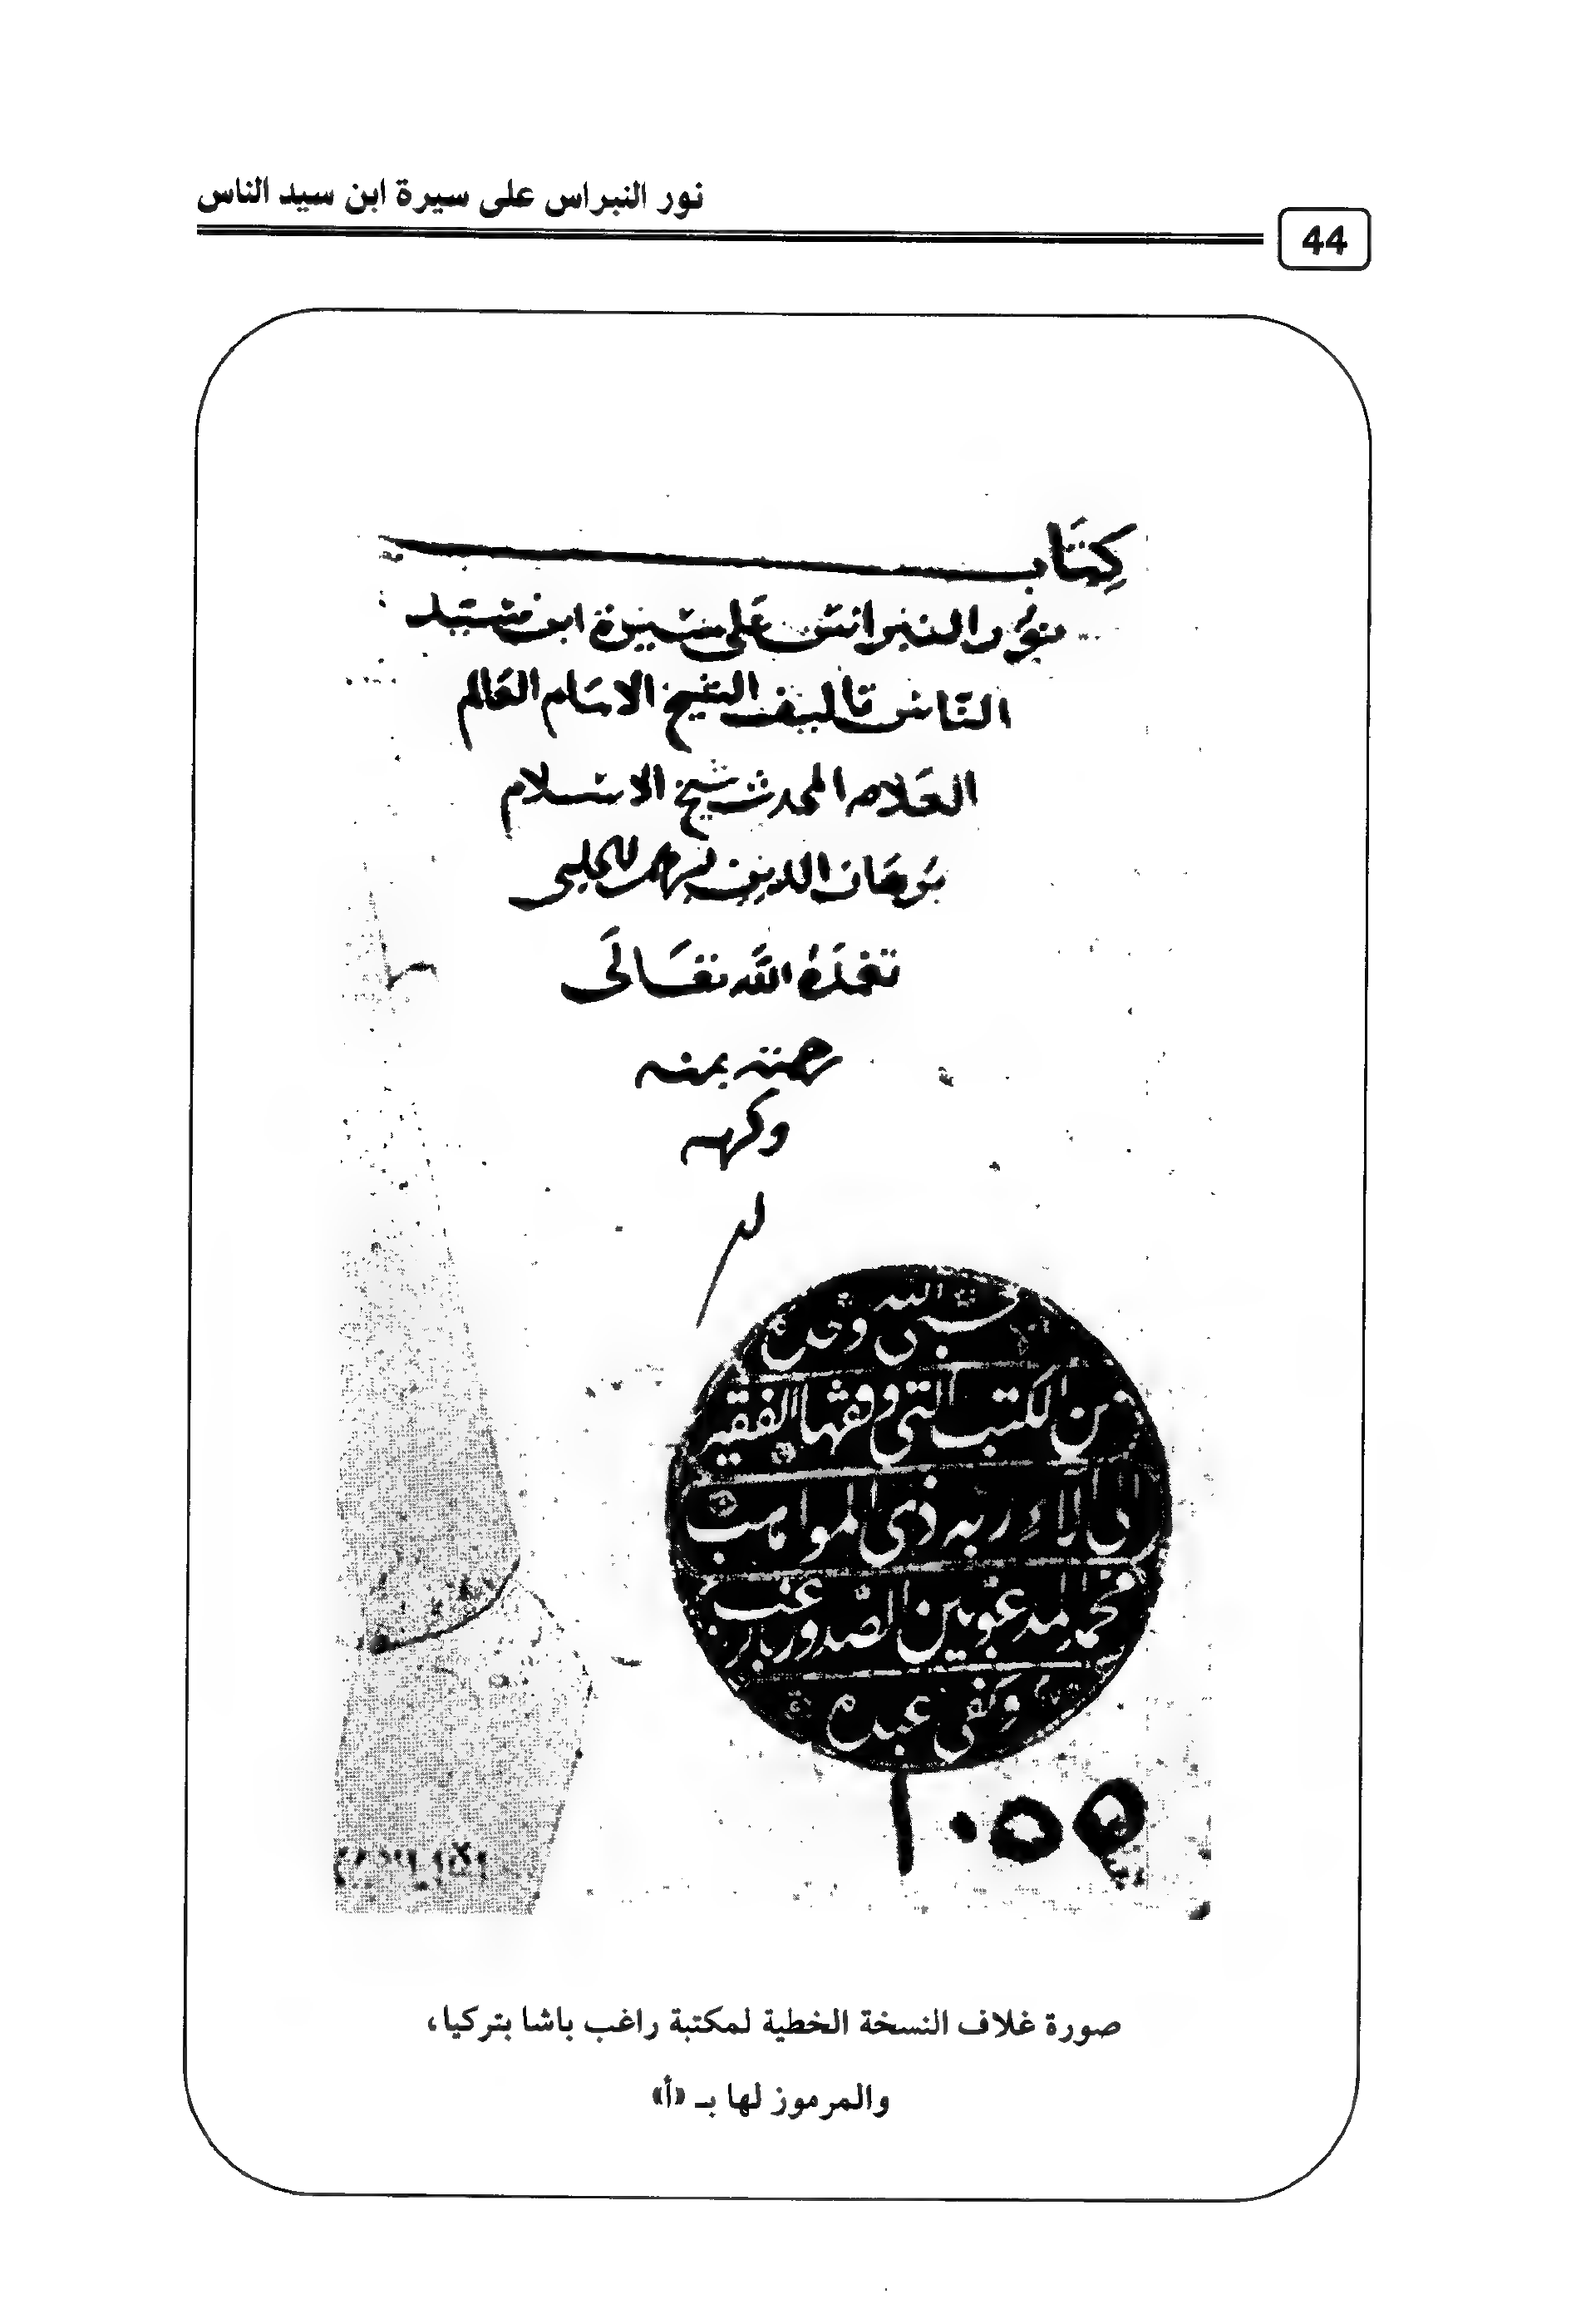 نور النبراس على سيرة ابن سيد الناس
44
كِتَاب
نور النبراس على سيرة ابن سيد
الناس تاليف الشيخ الامام العالم
العلامه المحدث شيخ الاسلام
برهان الدين ابرهيم الحلبي
تغمده الله تعالى
رحمته بمنه
وكرمه
حسبي الله وحده
من الكتب التي وقفها الفقير
الى آلاء ربه ذي المواهب
محمد المدعو بين الصدور براغب
وكفى عبده
صورة غلاف النسخة الخطية لمكتبة راغب باشا بتركيا،
والمرموز لها بـ «أ»